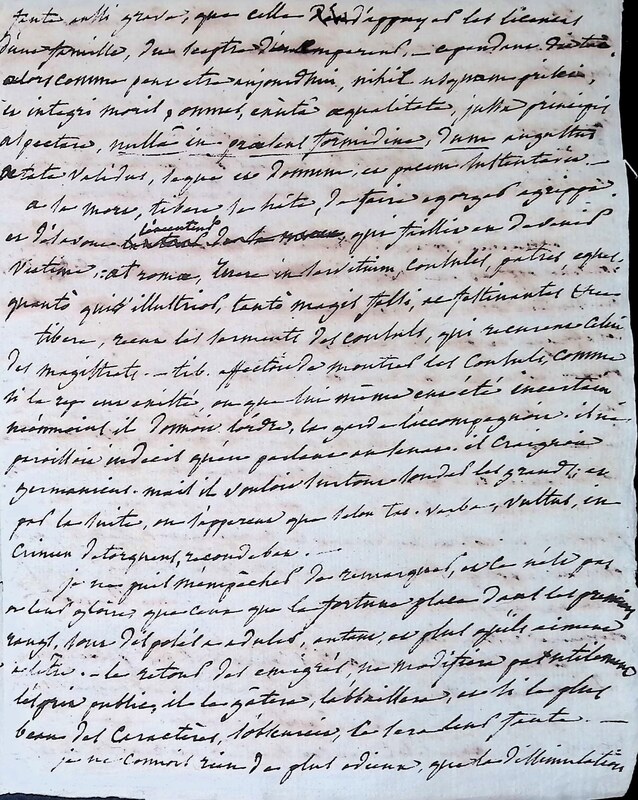 faute aussi grave, que celle d'appuyer les licences
d'une famille, du sceptre d'un empereur, — cependant
alors comme peut etre aujourdhui, nihil usquam prisci,
et integri moris, omnes, exutâ aequalitate, jussa principis
aspectare, nullâ in praesens formidine, dum augustus
aetate validus, seque et domum, et pacem sustentavit. —
a sa mort, tibere se hâte, de faire egorger agrippa
et désavoue le centurion, qui faillit en devenir
victime. at romae, ruere in servitium, consules, patres, eques.
quantò quis illustrior, tantò magis falsi, ac festinantes
tibere, recut les serments des consuls, qui recurent celui
des magistrats. — tib. affectoit de montrer les consuls, comme
si la rep. eut existé, ou que lui même eut été incertain
néanmoins il donnoit l'ordre, la garde l'accompagnoit. il ne
paroissoit indecis qu'en parlant au senat. il craignoit
germanicus. mais il vouloit surtout sonder les grands; et
par la suite, on s'apperçut que selon tac. verba, vultus, in
crimen detorquens, recondebat. —
je ne puis m'empêcher de remarquer, et ce n'est pas
à leur gloire que ceux que la fortune place dans les premiers
rangs, sont disposés a aduler, autant, et plus qu'ils aiment
a l'être. — le retour des emigrés, ne modifiera pas utilement
l'esprit public, il le gâtera, l'abbaissera, et si le plus
beau des caractères, s'obscurcit, ce sera leur faute. —
je ne connois rien de plus odieux, que la dissimulation